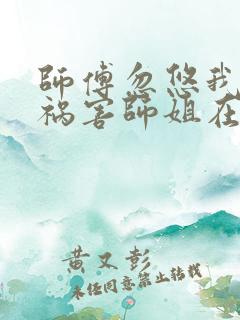 師傅忽悠我
祸害師姐在
黄又彭
未经同意禁止转载